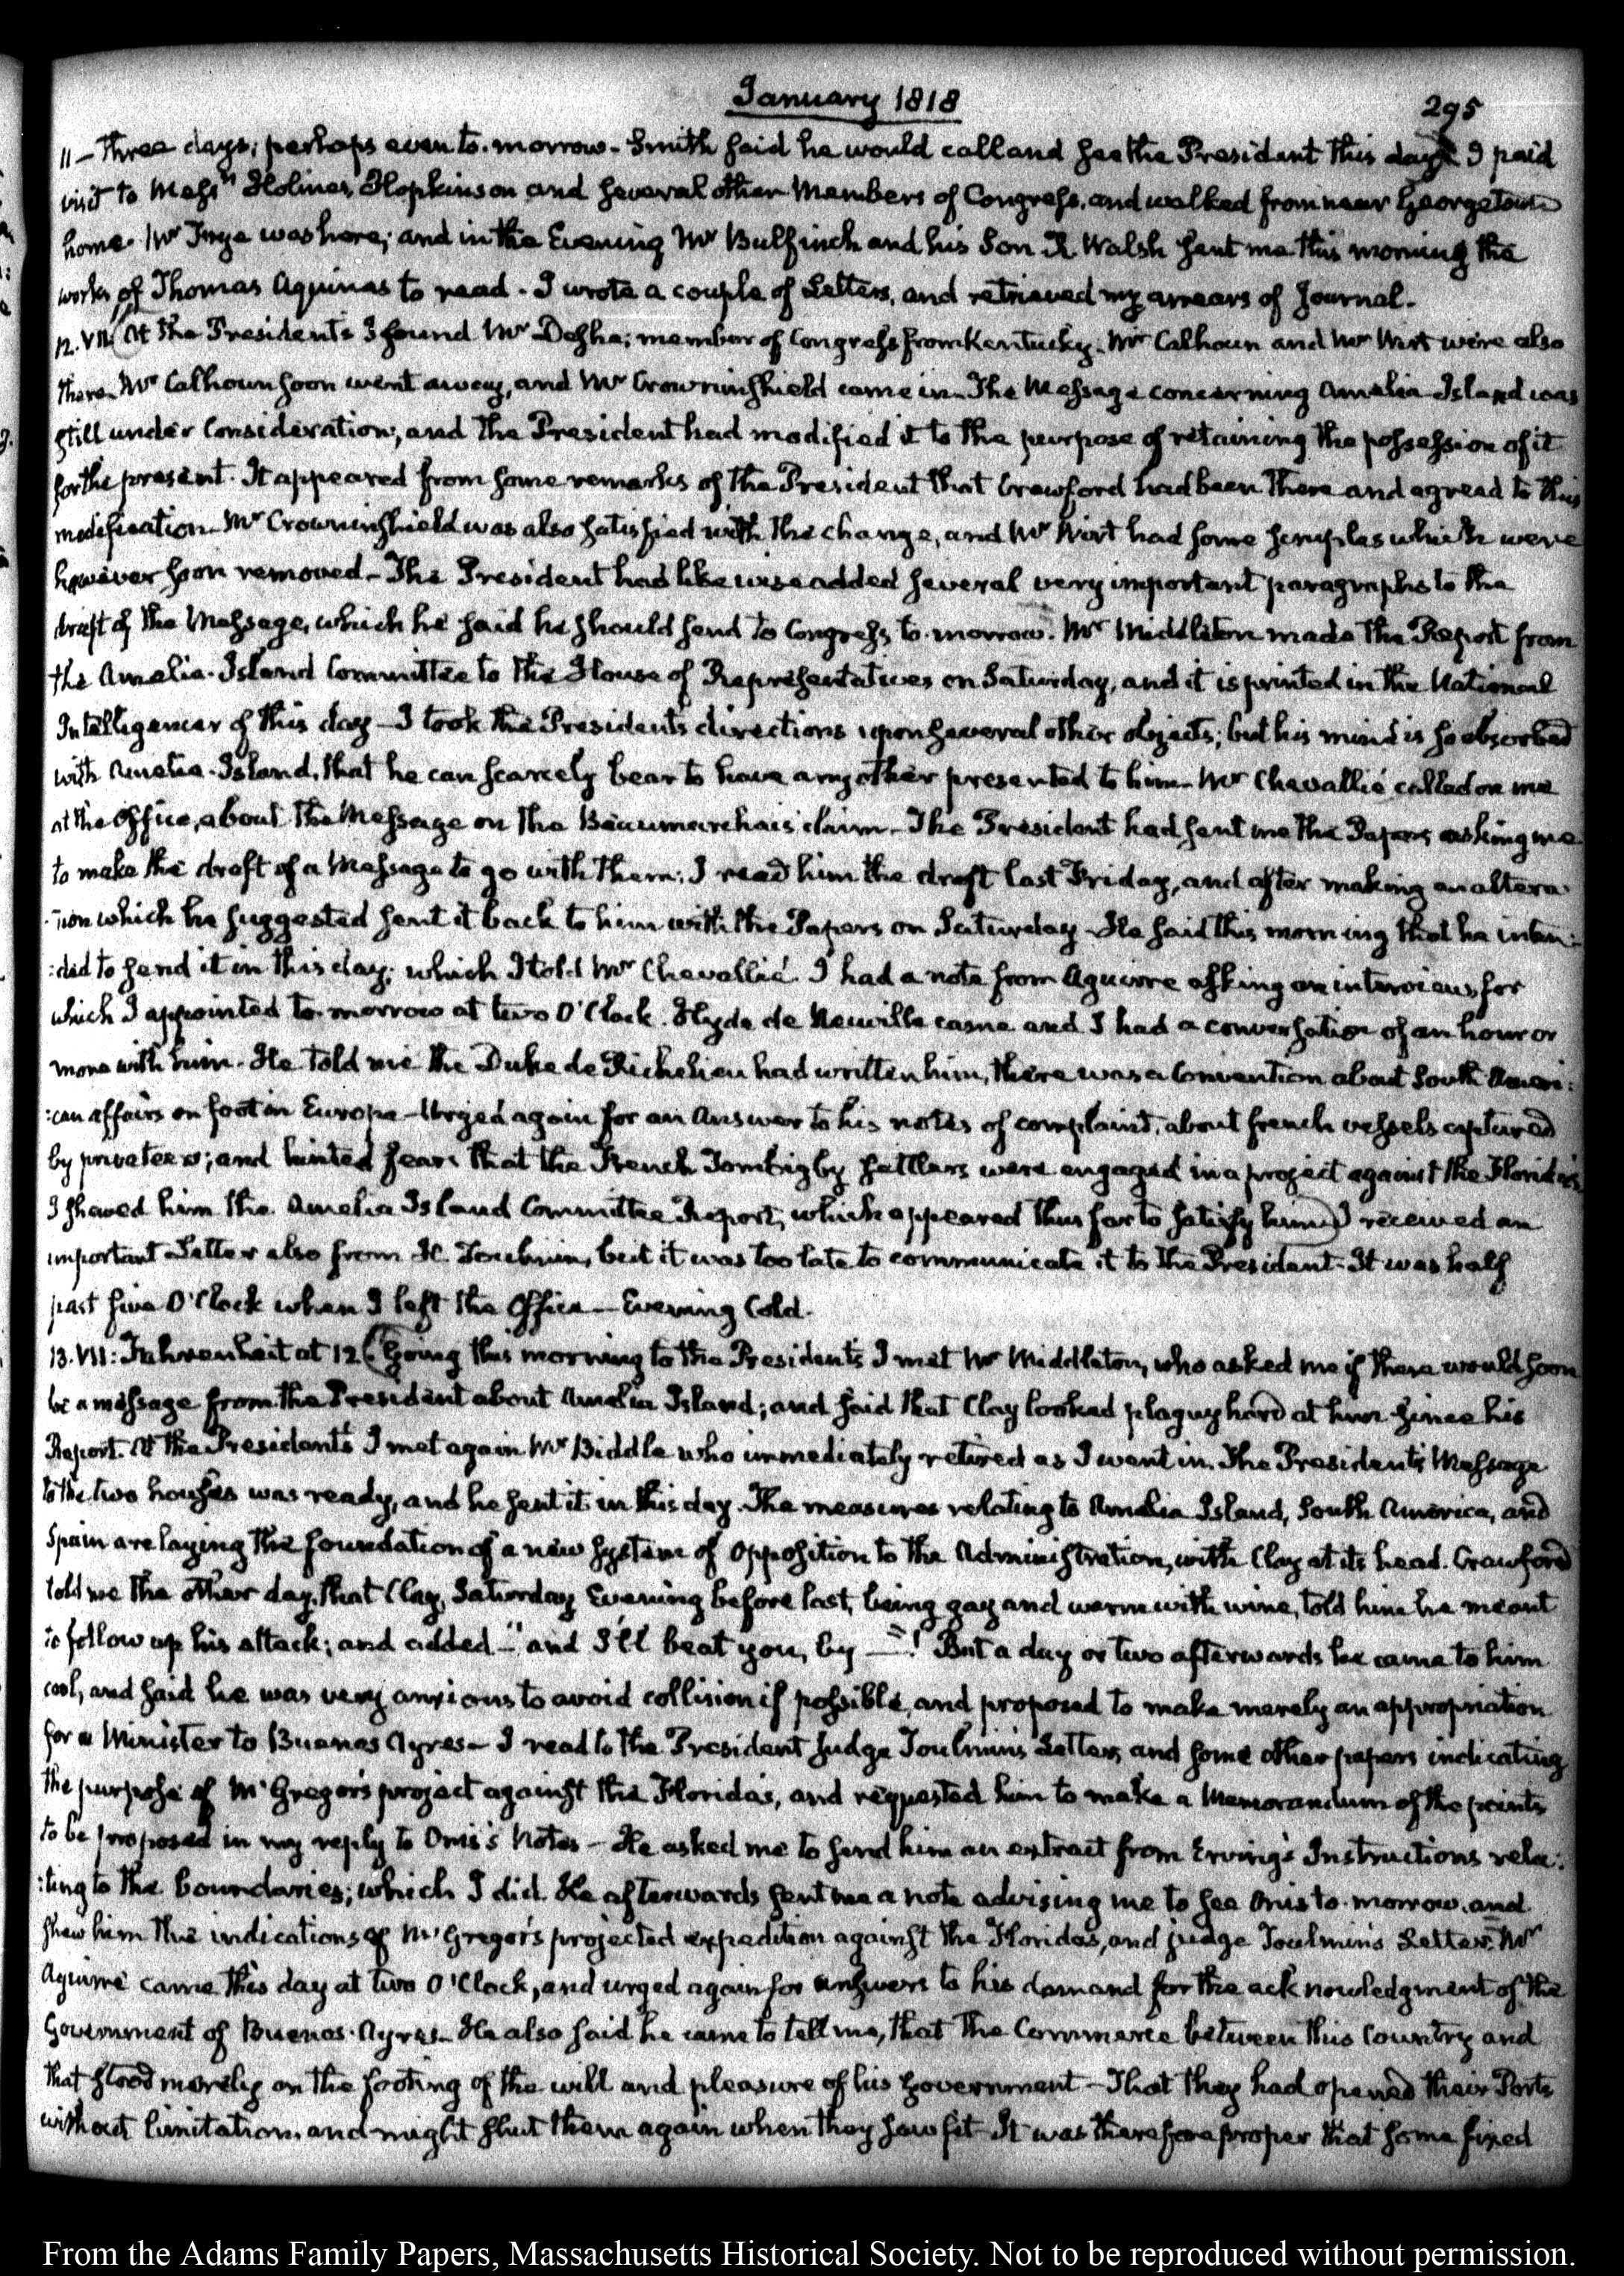 January 1818
295
11 - three days; perhaps even to-morrow - Smith said he would call and see the President this day. I paid
visit to Messrs. Holmes, Hopkinson and several other Members of Congress, and walked from near Georgetown
home. Mr Inge was here; and in the Evening Mr Bulfinch and his Son R. Walsh sent me this morning the
works of Thomas Aquinas to read. I wrote a couple of Letters, and retrieved my arrears of Journal.
12. VII. At the President's I found Mr Desha; member of Congress from Kentucky. Mr Calhoun and Mr Wirt were also
there. Mr Calhoun soon went away, and Mr Crowninshield came in. The Message concerning Amelia-Island was
still under Consideration, and the President had modified it to the purpose of retaining the possession of it
for the present. It appeared from some remarks of the President that Crawford had been there and agreed to this
modification. Mr Crowninshield was also satisfied with the change, and Mr Wirt had some scruples which were
however soon removed - The President had likewise added several very important paragraphs to the
draft of the Message, which he said he should send to Congress to-morrow. Mr Middleton made the Report from
the Amelia-Island Committee to the House of Representatives on Saturday, and it is printed in the National
Intelligencer of this day - I took the President's directions upon several other objects; but his mind is so absorbed
with Amelia-Island, that he can scarcely bear to have any other presented to him - Mr Chevallié called on me
at the Office, about the Message on the Beaumarchais claim - The President had sent me the Papers, asking me
to make the draft of a Message to go with them; I read him the draft last Friday, and after making an altera
:tion which he suggested sent it back to him with the Papers on Saturday - He said this morning that he inten:
:ded to send it in this day; which I told Mr Chevallié. I had a note from Aguirre asking an interview, for
which I appointed to-morrow at two O'Clock. Hyde de Neuville came and I had a conversation of an hour or
more with him. He told me the Duke de Richelieu had written him, there was a Convention about South Ameri:
:can affairs on foot in Europe - Urged again for an Answer to his notes of complaint, about french vessels captured
by privateers; and hinted fears that the French Tombigby settlers were engaged in a project against the Florida's
I shewed him the Amelia Island Committee Report, which appeared thus far to satisfy him. I received an
important Letter also from H. Toulmin, but it was too late to communicate it to the President - It was half
past five O'Clock when I left the Office - Evening Cold.
13. VII: Fahrenheit at 12 Going this morning to the President's I met Mr Middleton, who asked me if there would soon
be a message from the President about Amelia Island; and said that Clay looked plaguy hard at him since his
Report. At the President's I met again Mr Biddle who immediately retired as I went in. The President's Message
to the two houses was ready, and he sent it in this day. The measures relating to Amelia Island, South America, and
Spain are laying the foundation of a new system of opposition to the Administration, with Clay at its head. Crawford
told me the other day, that Clay, Saturday Evening before last, being gay and warm with wine, told him he meant
to follow up his attack; and added - "and I'll beat you, by —"! But a day or two afterwards he came to him
cool, and said he was very anxious to avoid collision if possible, and proposed to make merely an appropriation
for a Minister to Buenos Ayres - I read to the President Judge Toulmin's Letters and some other papers indicating
the purpose of Mc'Gregor's project against the Florida's, and requested him to make a Memorandum of the points
to be proposed in my reply to Onis's Notes - He asked me to send him an extract from Erving's Instructions rela:
:ting to the boundaries; which I did. He afterwards sent me a note advising me to see Onis to-morrow, and
shew him the indications of Mc'Gregor's projected expedition against the Florida's, and judge Toulmin's Letter. Mr
Aguirre came this day at two O'Clock, and urged again for answers to his demand for the acknowledgment of the
Government of Buenos-Ayres - He also said he came to tell me, that the Commerce between this Country and
that stood merely on the footing of the will and pleasure of his Government - That they had opened their Ports
without limitation, and might shut them again when they saw fit. It was therefore proper that some fixed
From the Adams Family Papers, Massachusetts Historical Society. Not to be reproduced without permission.